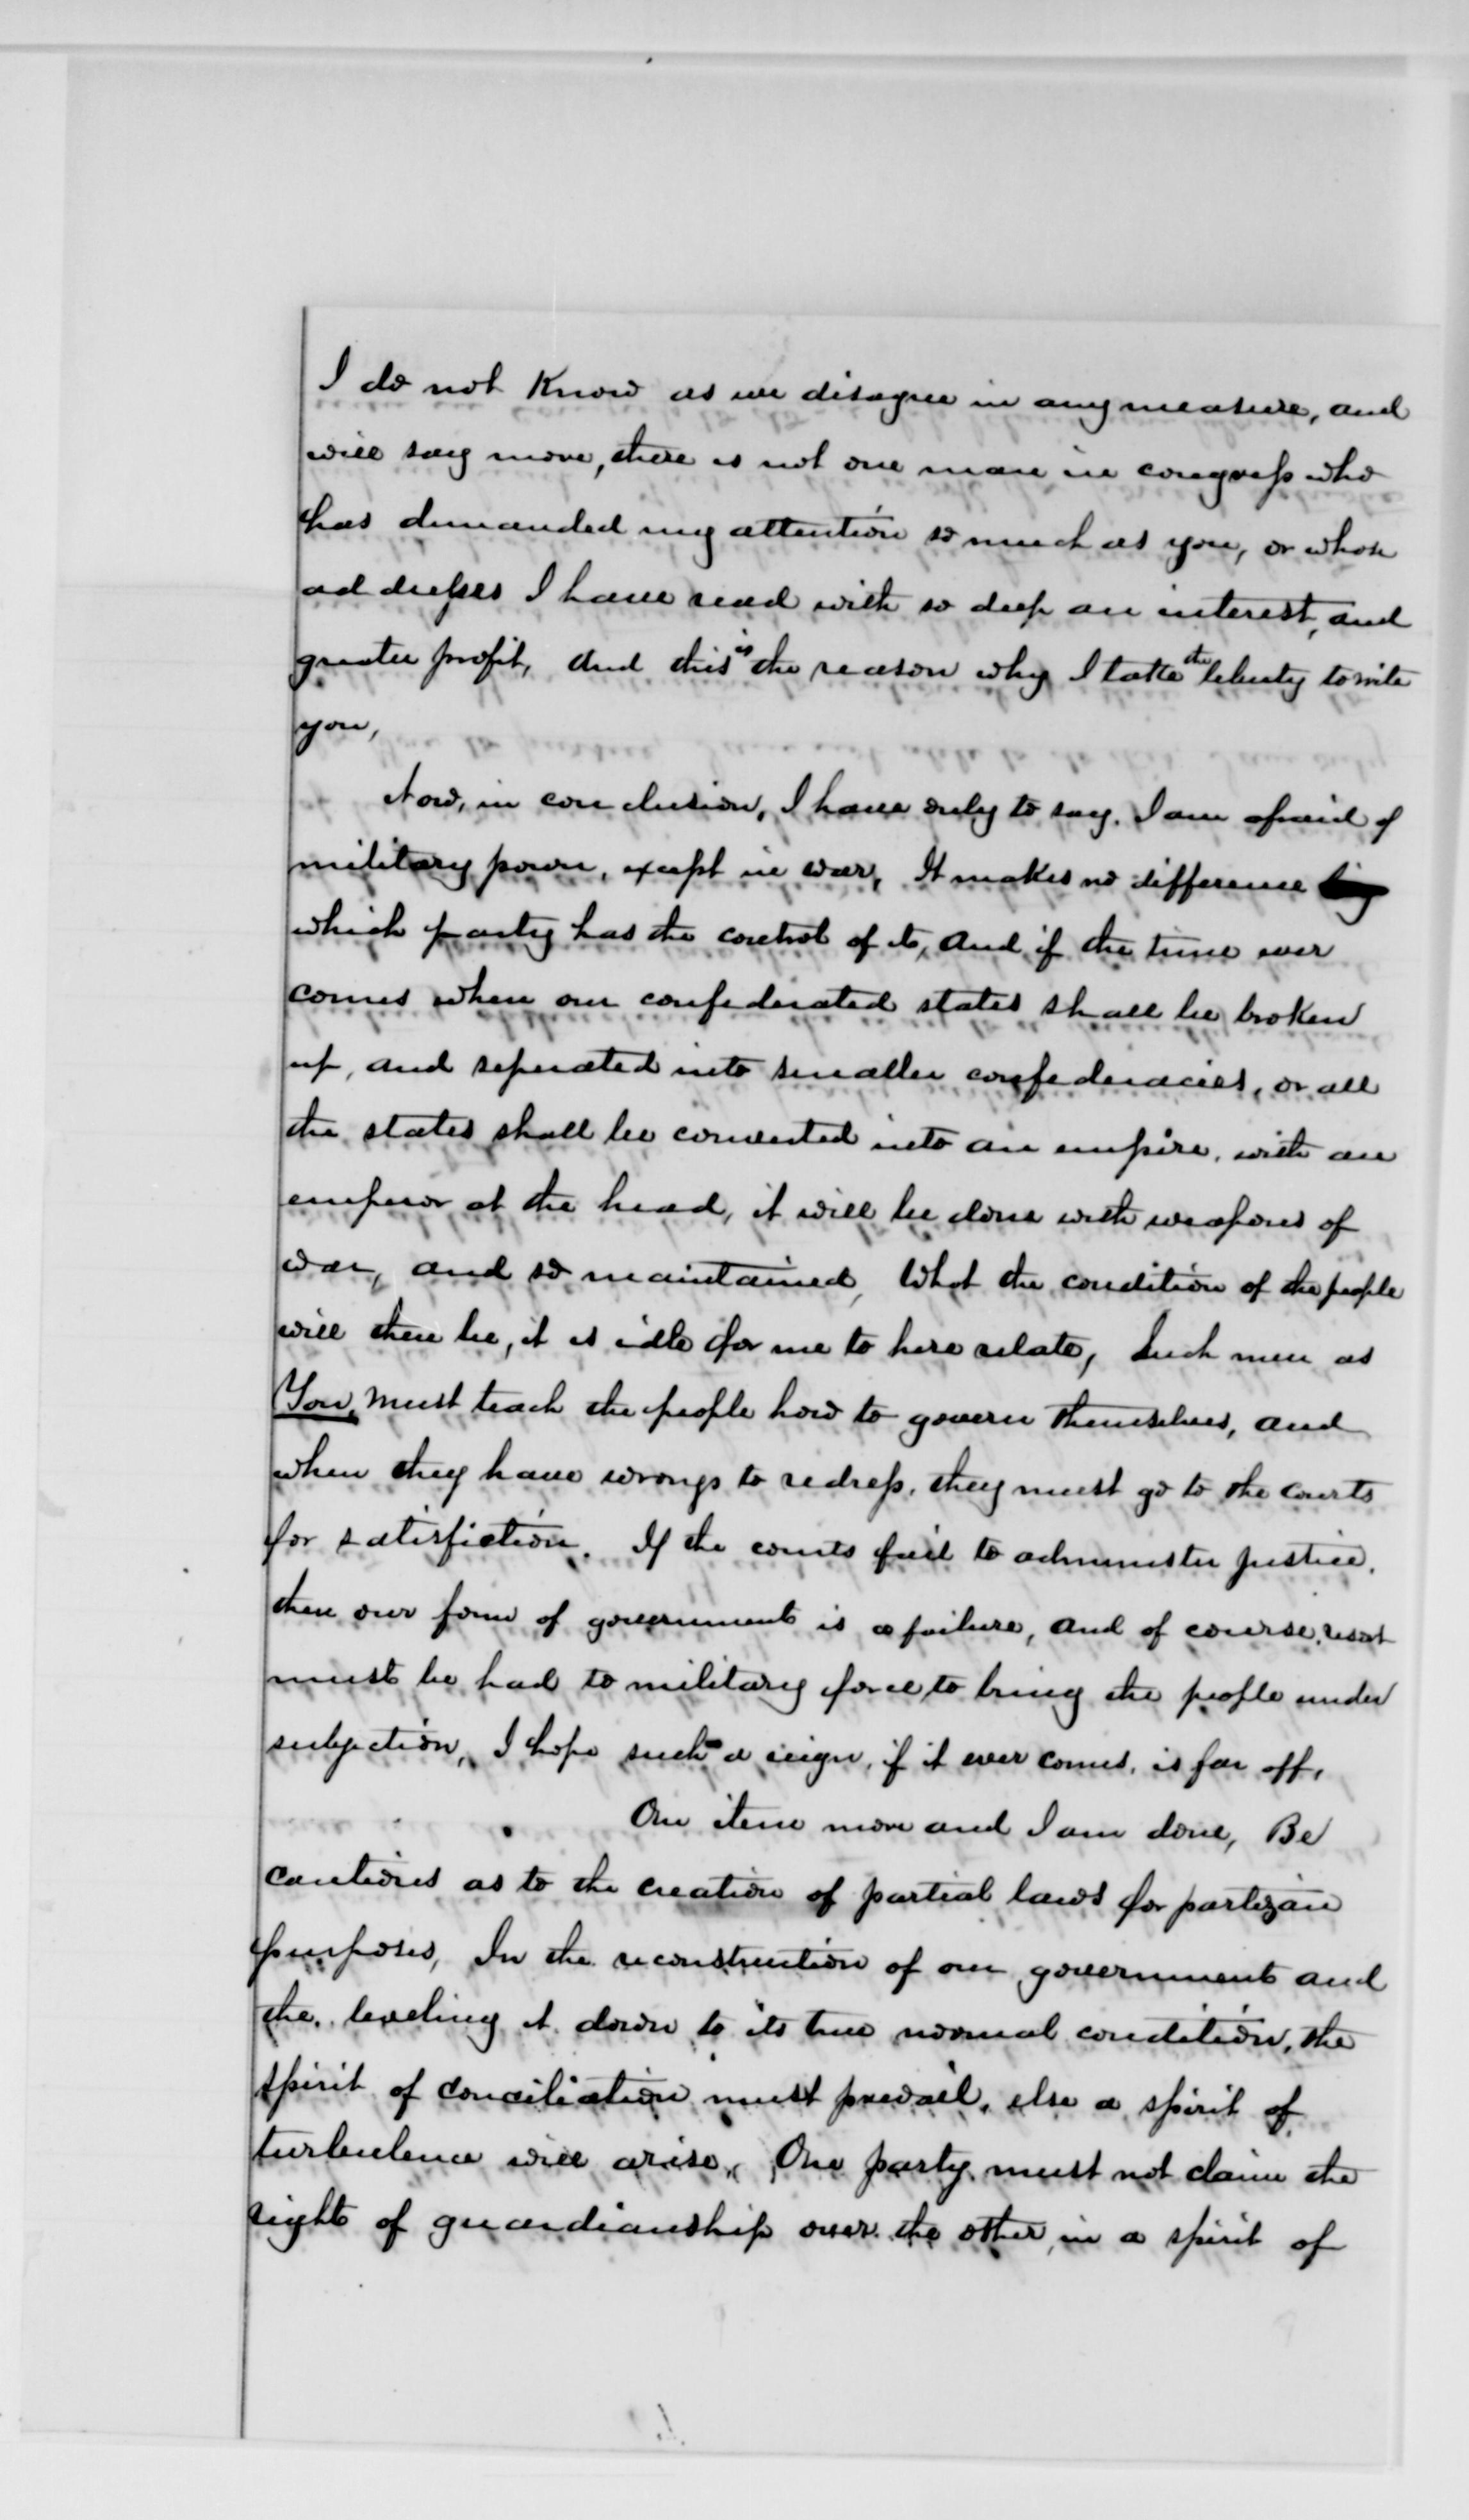 I do not Know as we disagree in any measure, and
will say more, there is not one man in congress who
has demanded my attention so much as you, or whose
addresses I have read with so deep an interest, and
greater profit, And this is the reason why I take the liberty to write
you,
Now, in conclusion, I have only to say. I am afraid of
military power, except in war, It makes no difference
which party has the control of it, And if the time ever
comes when our confederated states shall be broken
up, and seperated into smaller confederacies, or all
the states shall be converted into an empire, with an
emperor at the head, it will be done with weapons of
war, and so maintained, What the condition of the people
will then be, it is idle for me to here relate, Such men as
You, must teach the people how to govern themselves, and
when they have wrongs to redress, they must go to the courts
for satisfiction. If the courts fail to administer justice,
then our form of government is a failure, and of course, resort
must be had to military force to bring the people under
subjection, I hope such a reign, if it ever comes, is far off,
One item more and I am done, Be
cautious as to the creation of partial laws for partizan
purposes, In the reconstruction of our government and
the leveling it down to its true normal condition, the
spirit of conciliation must prevail, else a spirit of
turbulence will arise, One party must not claim the
right of guardianship over the other, in a spirit of